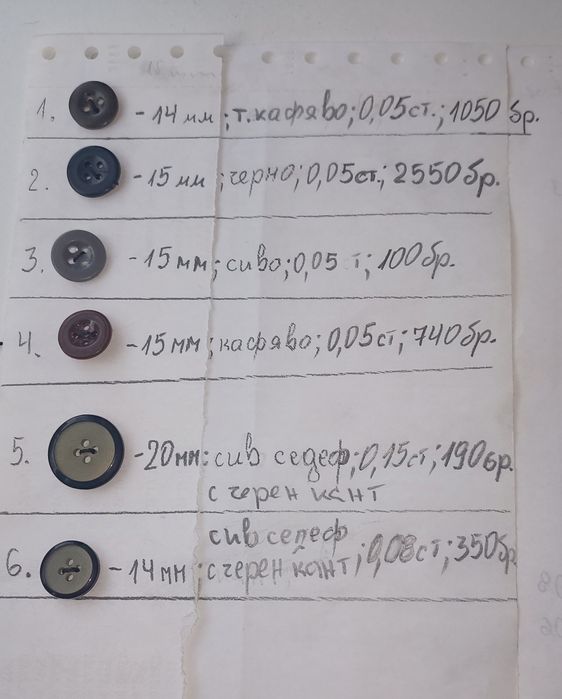 1. - 14 мм; т. кафяво; 0,05 ст.; 1050 бр.
2. - 15 мм; черно; 0,05 ст.; 2550 бр.
3. - 15 мм; сиво; 0,05 т; 100 бр.
4. - 15 мм; кафяво; 0,05 ст; 740 бр.
5. - 20 мм: сив седеф; 0,15 ст; 190 бр.
с черен кант
сив седеф
6. - 14 мм; с черен кант; 0,08 ст; 350 бр